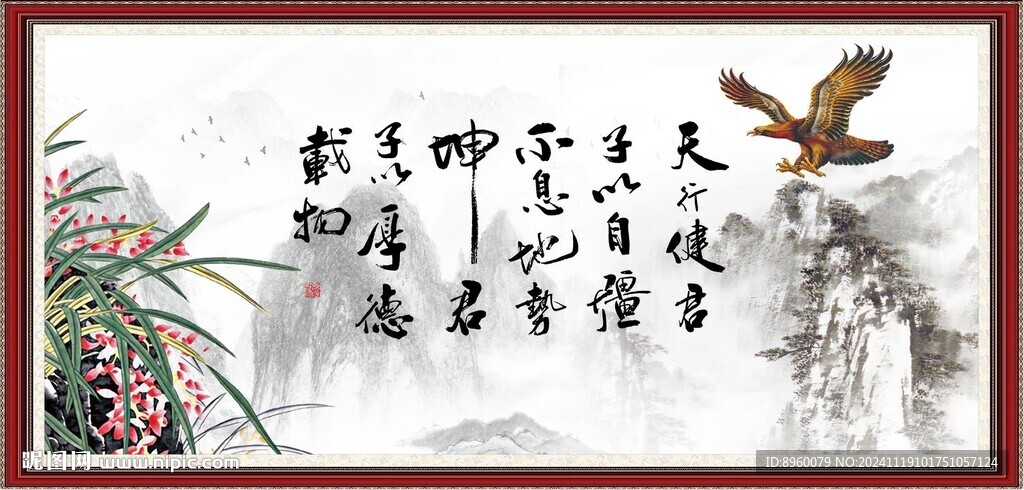 天行健君
子以自彊
不息地勢
坤君
子以厚德
載物
昵图网 www.nipic.com
ID:8960079 NO:20241119101751057124